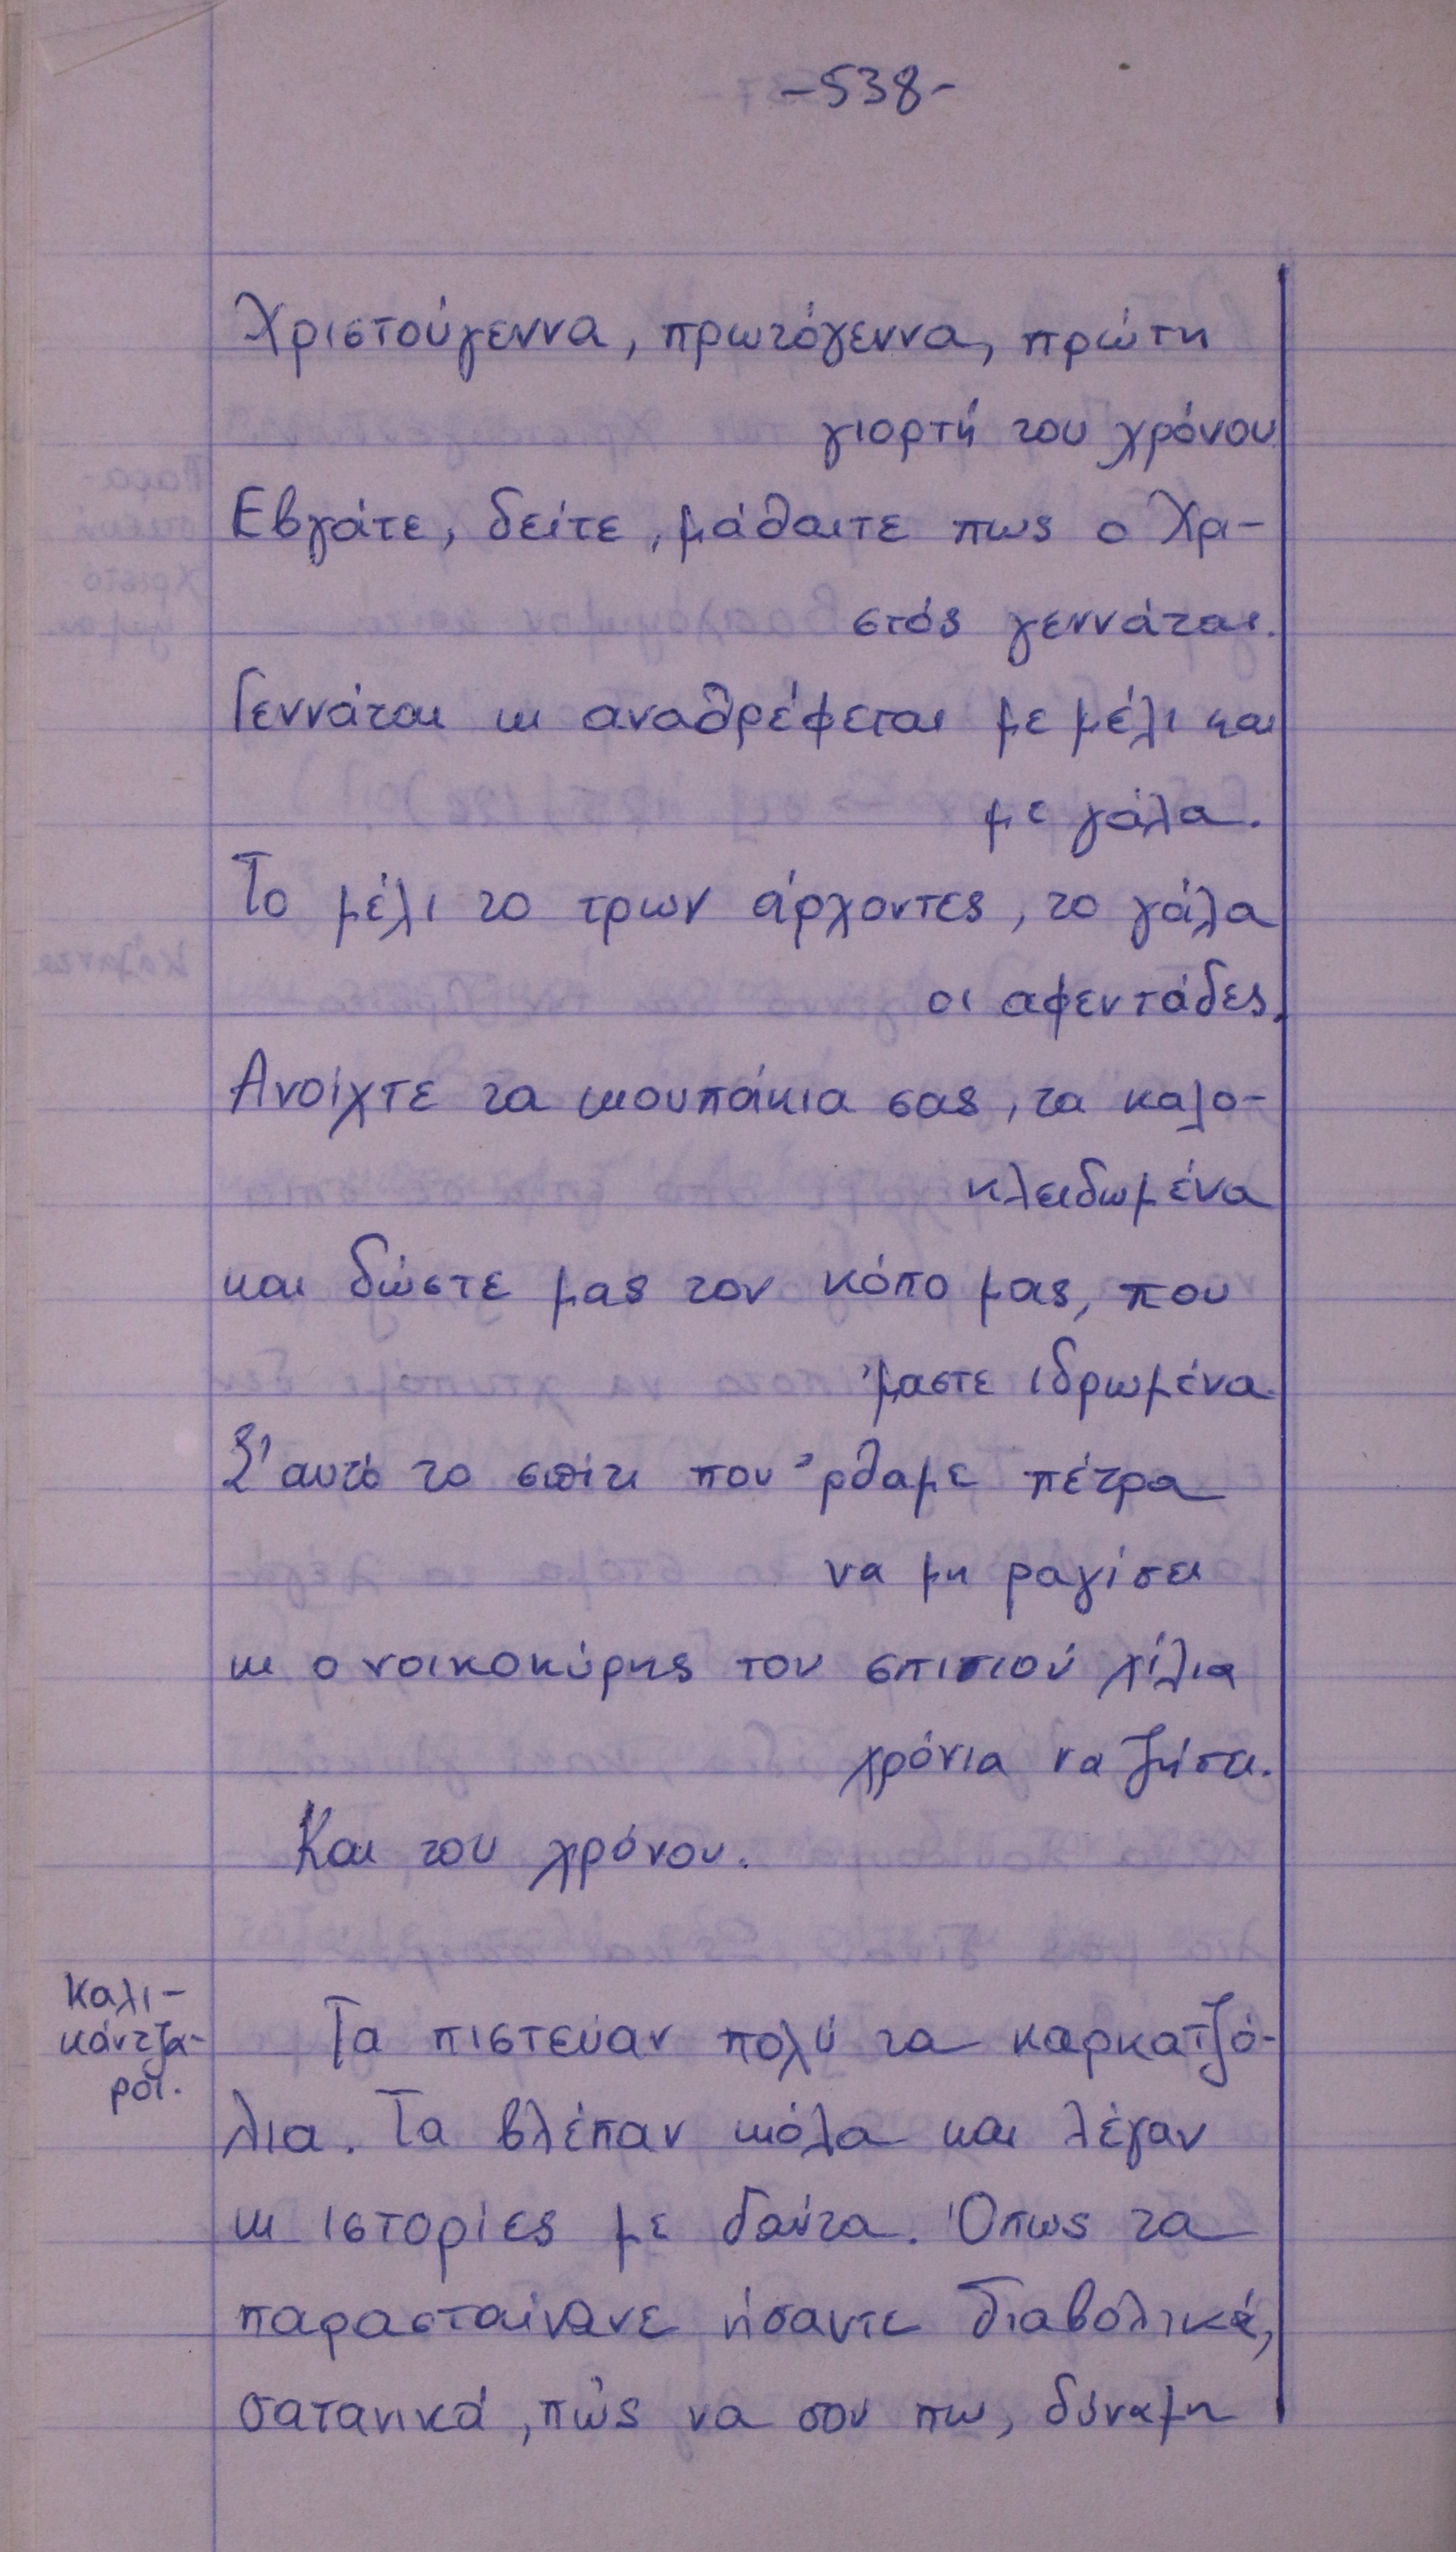 -538-
Χριστούγεννα, πρωτόγεννα, πρώτη
γιορτή του χρόνου
Εβγάτε, δείτε, μάθαιτε πως ο Χρι-
στός γεννάται.
Γεννάται κι αναθρέφεται με μέλι και
με γάλα.
Το μέλι το τρων άρχοντες, το γάλα
οι αφεντάδες.
Ανοίχτε τα κουπάκια σας, τα καλο-
κλειδωμένα
και δώστε μας τον κόπο μας, που
'μαστε ιδρωμένα.
Σ' αυτό το σπίτι που 'ρθαμε πέτρα
να μη ραγίσει
κι ο νοικοκύρης του σπιτιού χίλια
χρόνια να ζήσει.
Και του χρόνου.
Καλι-
κάντζα-
ροι.
Τα πιστεύαν πολύ τα καρκατζό-
λια. Τα βλέπαν κιόλα και λέγαν
κι ιστορίες με δαύτα. Όπως τα
παρασταίνανε ήσαντε διαβολικά,
σατανικά, πώς να σου πω, δύναμη